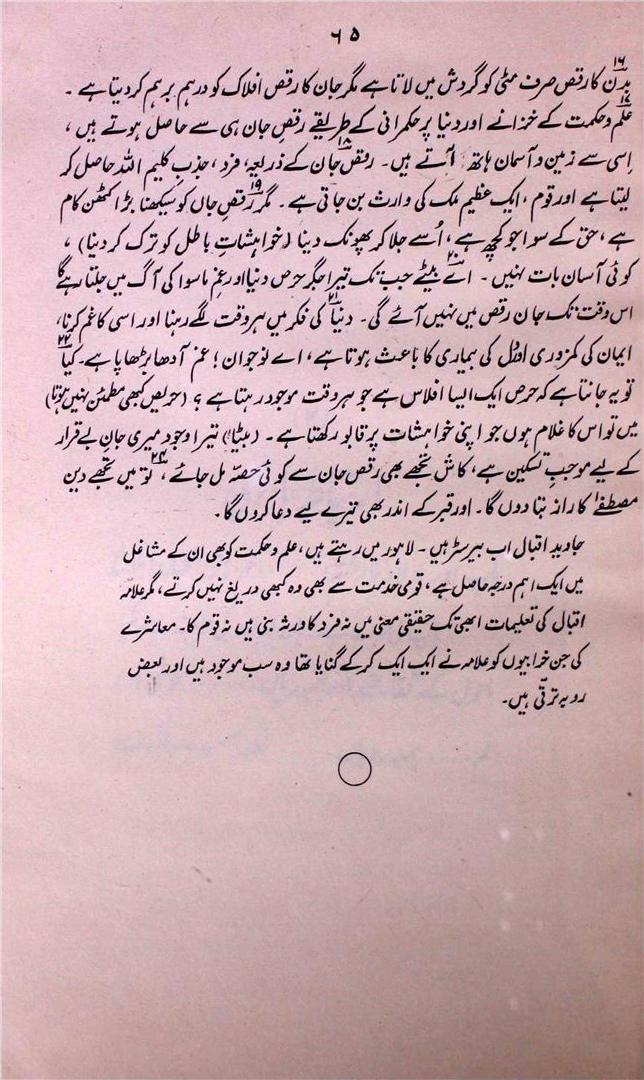 ۶۵
۱۶ بدن کا رقص صرف مٹی کو گردش میں لاتا ہے مگر جان کا رقص افلاک کو درہم برہم کر دیتا ہے ۔
۱۷ علم و حکمت کے خزانے اور دنیا پر حکمرانی کے طریقے رقصِ جان ہی سے حاصل ہوتے ہیں ،
اِسی سے زمین و آسمان ہاتھ آتے ہیں ۔ ۱۸ رقصِ جان کے ذریعہ، فرد ، جذبِ کلیم اللہ حاصل کر
لیتا ہے اور قوم ، ایک عظیم ملک کی وارث بن جاتی ہے ۔ ۱۹ مگر رقصِ جاں کو سیکھنا بڑا کٹھن کام
ہے ، حق کے سوا جو کچھ ہے ، اُسے جلا کر پھونک دینا (خواہشاتِ باطل کو ترک کر دینا) ،
کوئی آسان بات نہیں ۔ ۲۰ اے بیٹے جب تک تیرا جگر حرص دنیا اور غمِ ماسوا کی آگ میں جلتا رہے گا
اس وقت تک جان رقص میں نہیں آئے گی ۔ ۲۱ دنیا کی فکر میں ہر وقت لگے رہنا اور اسی کا غم کرنا،
ایمان کی کمزوری اور دل کی بیماری کا باعث ہوتا ہے ، اے نوجوان ! غم آدھا بڑھاپا ہے ۔ ۲۲ کیا
تو یہ جانتا ہے کہ حرص ایک ایسا افلاس ہے جو ہر وقت موجود رہتا ہے ؟ (حریص کبھی مطمئن نہیں ہوتا)
میں تو اس کا غلام ہوں جو اپنی خواہشات پر قابو رکھتا ہے ۔ (بیٹا) تیرا وجود میری جانِ بے قرار
کے لیے موجبِ تسکین ہے ، کاش تجھے بھی رقصِ جان سے کوئی حصّہ مل جائے ، ۲۴ تو میں تجھے دینِ
مصطفےٰ کا راز بتا دوں گا ۔ اور قبر کے اندر بھی تیرے لیے دعا کروں گا ۔
جاوید اقبال اب بیرسٹر ہیں ۔ لاہور میں رہتے ہیں ، علم و حکمت کو بھی ان کے مشاغل
میں ایک اہم درجہ حاصل ہے ، قومی خدمت سے بھی وہ کبھی دریغ نہیں کرتے ، مگر علامہ
اقبال کی تعلیمات ابھی تک حقیقی معنی میں نہ فرد کا ورثہ بنی ہیں نہ قوم کا ۔ معاشرے
کی جن خرابیوں کو علامہ نے ایک ایک کر کے گنایا تھا وہ سب موجود ہیں اور بعض
رو بہ ترقی ہیں ۔